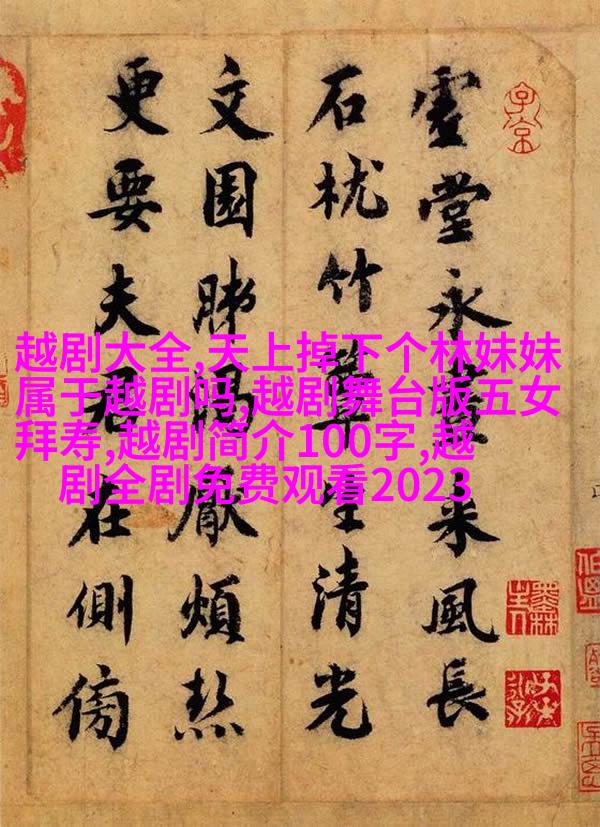 越剧大全,天上掉下个林妹妹
属于越剧吗,越剧舞台版五女
拜寿,越剧简介100字,越
剧全剧免费观看2023
虛堂永晝来風長
石枕竹簟生清光
文園肺渴厭煩熱
更要夫君在側傍